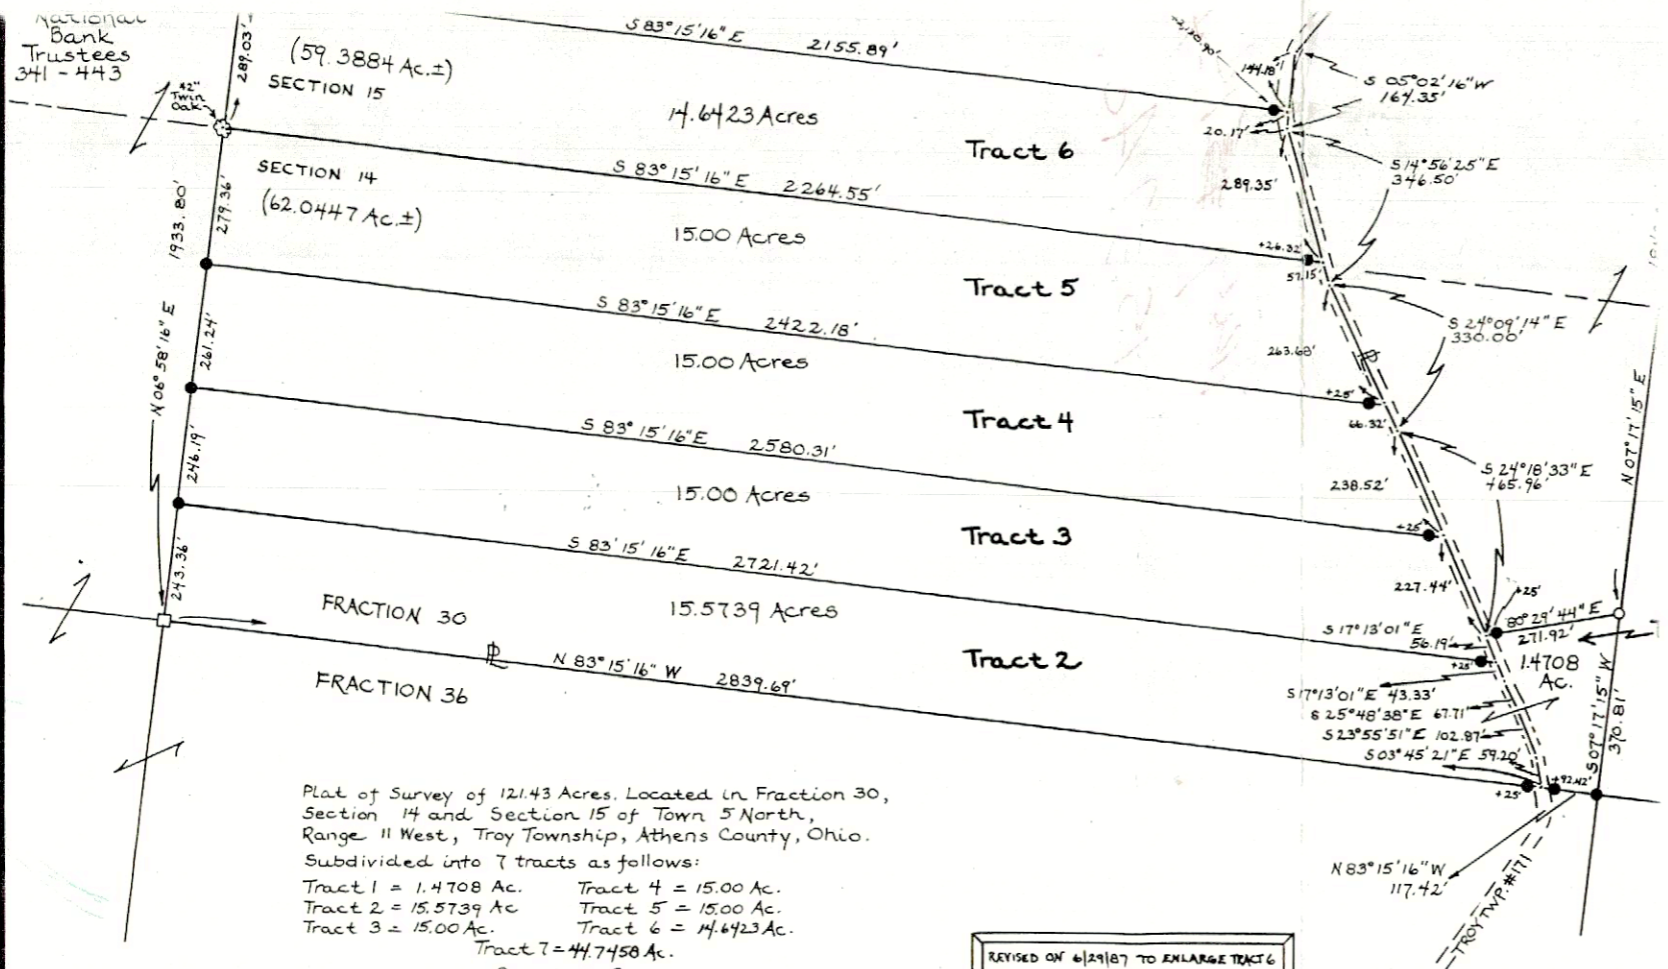 National
Bank
Trustees
341 - 443
289.03'
(59.3884 Ac.±)
SECTION 15
42"
Twin
Oak
S 83° 15' 16" E 2155.89'
14.6423 Acres
Tract 6
144.18'
S 05° 02' 16" W
164.35'
20.17'
S 14° 56' 25" E
346.50'
289.35'
SECTION 14
(62.0447 Ac.±)
279.36'
1933.80'
S 83° 15' 16" E 2264.55'
15.00 Acres
Tract 5
+26.32'
57.15'
S 24° 09' 14" E
330.00'
N 06° 58' 16" E
261.24'
S 83° 15' 16" E 2422.18'
15.00 Acres
Tract 4
263.68'
+25'
66.32'
N 07° 17' 15" E
S 24° 18' 33" E
465.96'
246.19'
S 83° 15' 16" E 2580.31'
15.00 Acres
Tract 3
238.52'
+25'
227.44'
243.36'
S 83° 15' 16" E 2721.42'
FRACTION 30
15.5739 Acres
Tract 2
+25'
80° 29' 44" E
271.92'
S 17° 13' 01" E
56.19'
+25'
1.4708
Ac.
S 17° 13' 01" E 43.33'
S 25° 48' 38" E 67.71'
S 23° 55' 51" E 102.87'
S 03° 45' 21" E 59.20'
+92.42'
+25'
S 07° 17' 15" W
370.81'
PL
N 83° 15' 16" W 2839.69'
FRACTION 36
N 83° 15' 16" W
117.42'
TROY TWP. #171
Plat of Survey of 121.43 Acres. Located in Fraction 30,
Section 14 and Section 15 of Town 5 North,
Range 11 West, Troy Township, Athens County, Ohio.
Subdivided into 7 tracts as follows:
Tract 1 = 1.4708 Ac. Tract 4 = 15.00 Ac.
Tract 2 = 15.5739 Ac Tract 5 = 15.00 Ac.
Tract 3 = 15.00 Ac. Tract 6 = 14.6423 Ac.
Tract 7 = 44.7458 Ac.
REVISED ON 6/29/87 TO ENLARGE TRACT 6